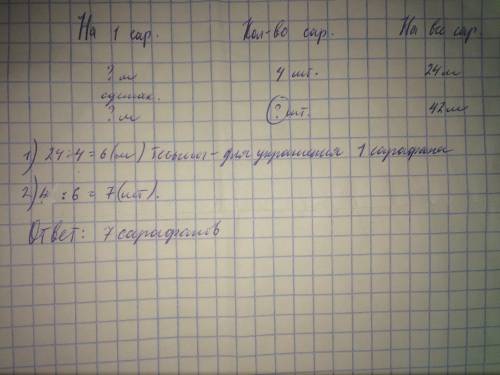 На 1 сар. Кол-во сар. На все сар.
? м 4 шт. 24 м
одинак.
? м ? шт. 42 м
1) 24:4=6(м) тесьмы - для украшения 1 сарафана
2) 4 :6 = 7(шт).
Ответ: 7 сарафанов